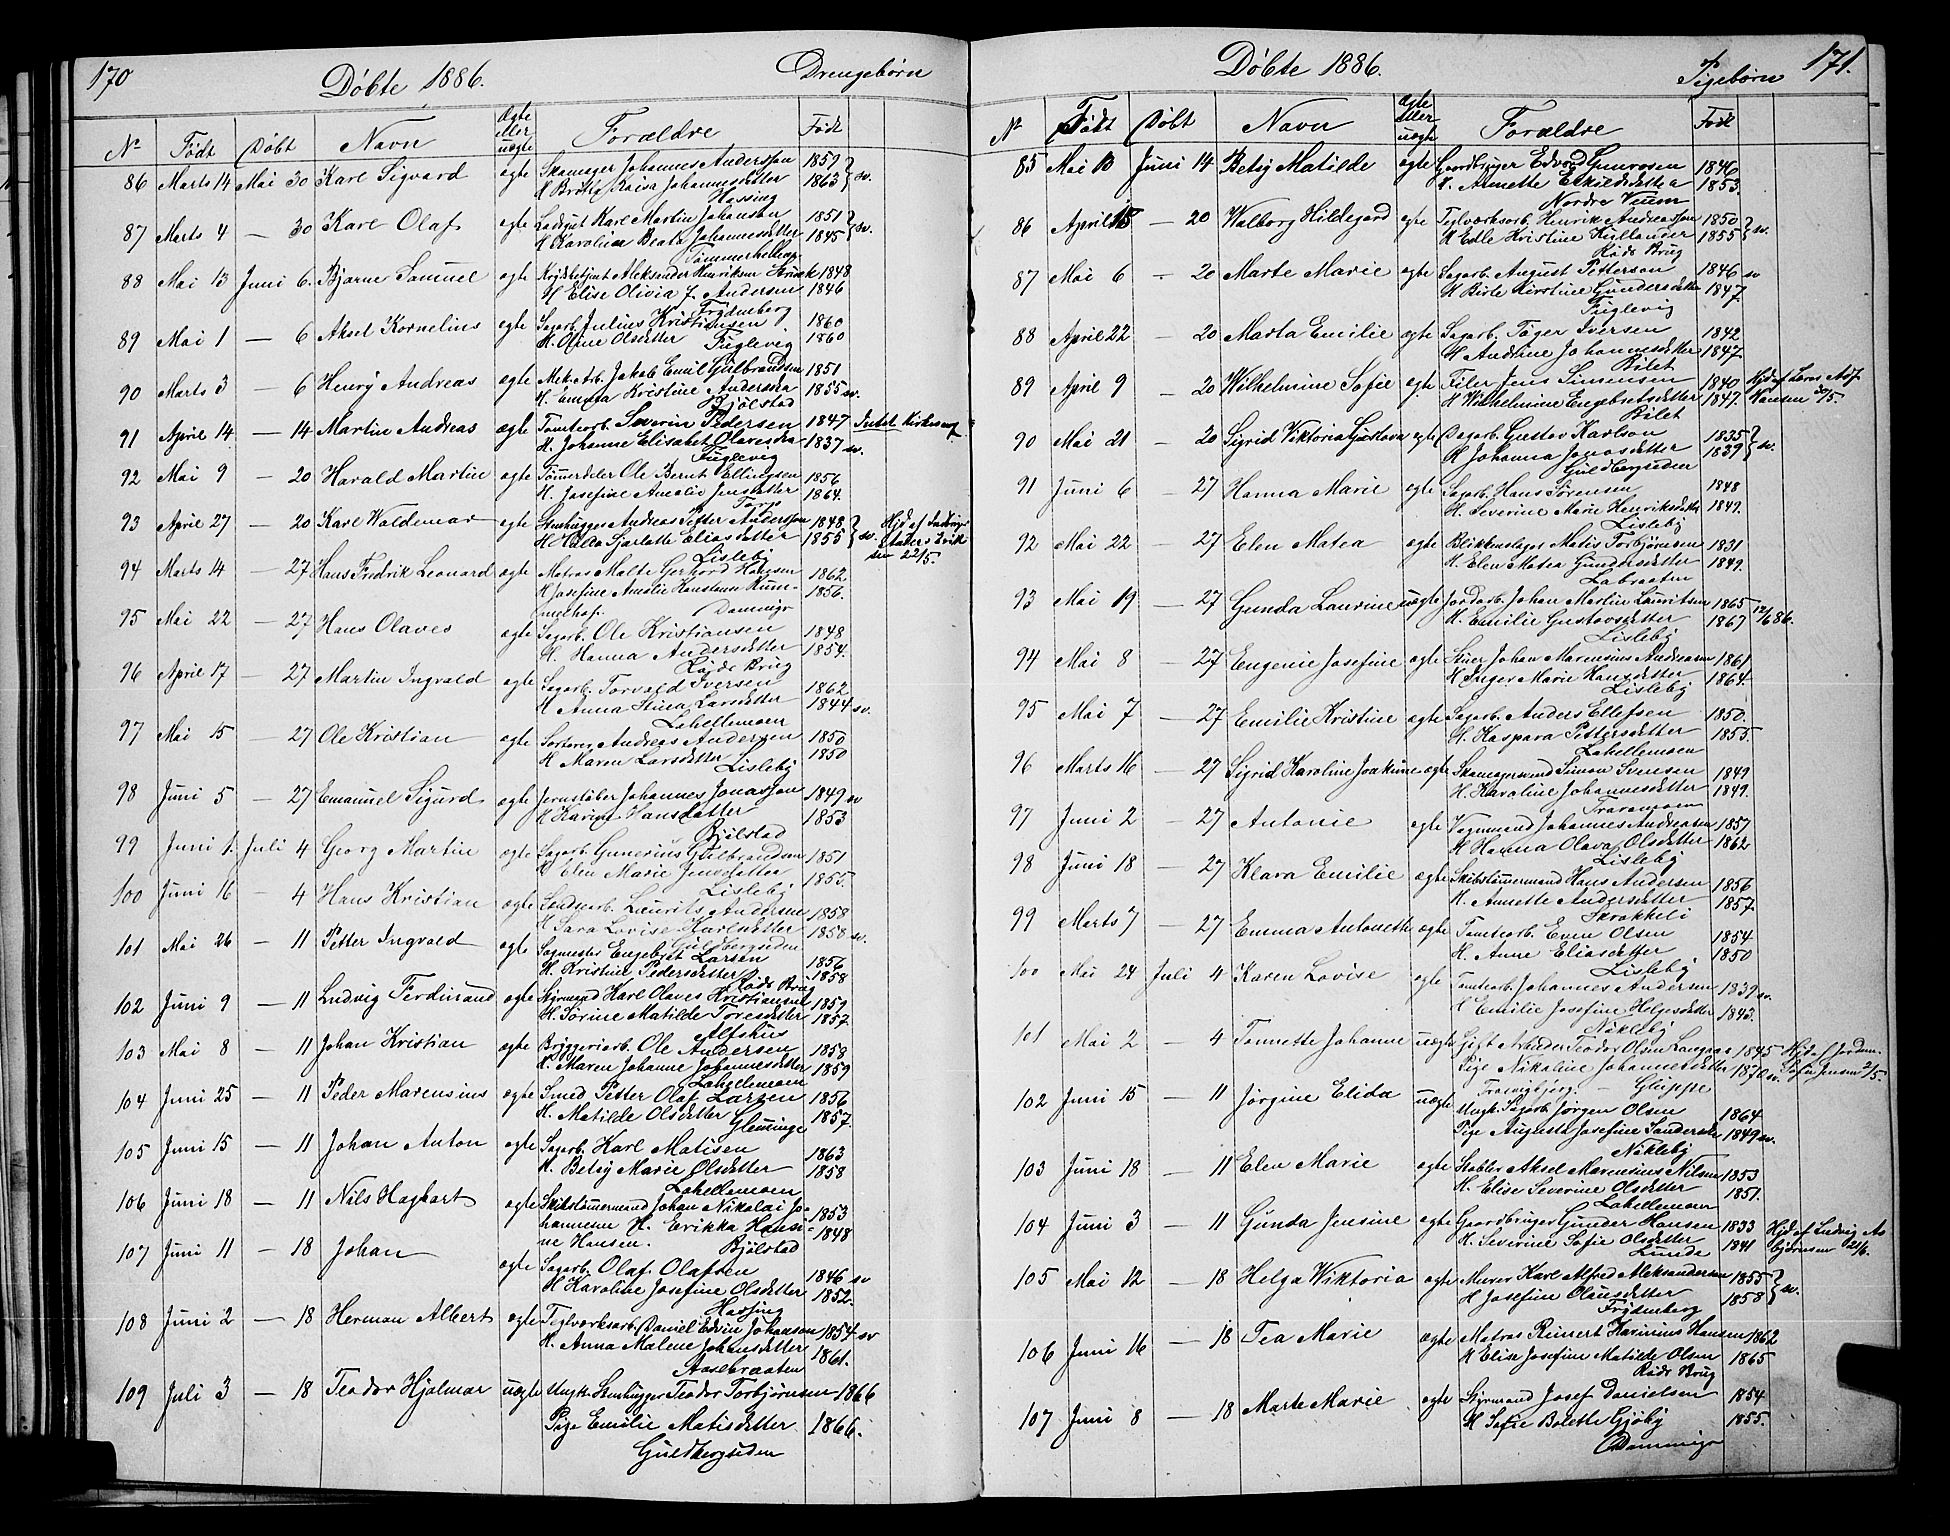 170 Döbte 1886. Drengebørn
№ Födt Döbt Navn Ægte eller uægte Forældre Födt
86 Marts 14 Mai 30 Karl Sigvard ægte Skomager Johannes Andersson 1859
H. Britta Kaisa Johannesdatter 1863 sv.
Hassing
87 Marts 4 — 30 Karl Olaf ægte Karl Martin Johansen 1851
H. Karolina Beata Johannesdatter 1845 sv.
88 Mai 13 Juni 6. Bjarne Samuel ægte Aleksander Henriksen 1848
H. Elise Olivia f. Andersen 1846
Frydenberg
89 Mai 1 — 6 Aksel Kornelius ægte Sagarb. Julius Kristiansen 1860
H. Oline Olsdatter 1860
Fuglevig
90 Marts 3 — 6 Henry Andreas ægte Mek. Arb. Jakob Emil Gulbrandsen 1851
H. Emma Kristine Andersdtr 1855 sv.
Bjølstad
91 April 14 — 14 Martin Andreas ægte Tomtearb. Severin Pedersen 1847
H. Johanne Elisabet Olavesdtr 1837 sv.
Fuglevig
92 Mai 9 — 20 Harald Martin ægte Ole Bernt Ellingsen 1856
H. Josefine Amalie Jensdatter 1864.
93 April 27 — 20 Karl Waldemar ægte Stenhugger Andreas Petter Andersson 1848
H. Hilda Sjarlotte Eliasdatter 1855 sv.
Lisleby
22/5.
94 Marts 14 — 27 Hans Fredrik Leonard ægte Matros Malte Gerhard Hansen 1862
H. Josefine Amalie 1856.
Dammyr
95 Mai 22 — 27 Hans Olaves ægte Sagarb. Ole Kristiansen 1848
H. Hanna Andersdatter 1854.
Røds Brug
96 April 17 — 27 Martin Ingvald ægte Sagarb. Torvald Iversen 1862
H. Anna Stina Larsdatter 1844 sv.
Lahellemoen
97 Mai 15 — 27 Ole Kristian ægte Sorterer Andreas Andersen 1850
H. Maren Larsdatter 1850
Lisleby
98 Juni 5 — 27 Emanuel Sigurd ægte Jernstøber Johannes Jonasson 1849 sv
H. Karine Hansdatter 1853
Bjølstad
99 Juni 1. Juli 4 Georg Martin ægte Sagarb. Gunerius Gulbrandsen 1851
H. Elen Marie Jensdatter 1855.
Lisleby
100 Juni 16 — 4 Hans Kristian ægte Laurits Andersen 1858
H. Sara Lovise Karlsdatter 1858 sv.
Guldbergsiden
101 Mai 26 — 11 Petter Ingvald ægte Sagmester Engebret Larsen 1856
H. Kristine Pedersdatter 1858
Røds Brug
102 Juni 9 — 11 Ludvig Ferdinand ægte Styrmand Karl Olaves Kristiansen 1859
H. Sørine Matilde Toresdatter 1857.
Alfshus
103 Mai 8 — 11 Johan Kristian ægte Bryggeriarb. Ole Andersen 1858
H. Maren Johanne Johannesdatter 1859
Lahellemoen
104 Juni 25 — 11 Peder Marensius ægte Smed Petter Olaf Larsen 1856
H. Matilde Olsdatter 1857.
Glemminge
105 Juni 15 — 11 Johan Anton ægte Sagarb. Karl Matisen 1863
H. Betsy Marie Olsdatter 1858
Lahellemoen
106 Juni 18 — 11 Nils Hagbart ægte Skibstømmermand Johan Nikolai Jo-
hannesen H. Erikka Hansi- 1853
ne Hansen. 1848
Bjølstad
107 Juni 11 — 18 Johan ægte Sagarb. Olaf Olafsen 1846 sv
H. Karoline Josefine Olsdatter 1852.
Hassing
108 Juni 2 — 18 Herman Albert ægte Teglværksarb. Daniel Edvin Johanson 1854 sv
H. Anna Malene Johansdatter 1861.
Aasebraaten
109 Juli 3 — 18 Teodor Hjalmar uægte Ungk. Stenhugger Teodor Torbjørnsen 1866
Pige Emilie Matisdatter 1866.
Guldbergsiden
Döbte 1886. Pigebørn 171.
№ Födt Döbt Navn Ægte eller uægte Forældre Födt
85 Mai 13 Juni 14 Betsy Matilde ægte Gaardbruger Edvard Gunrosen 1846
H. Annette Eskildsdatter 1853.
Nordre Veum
86 April 18 — 20 Walborg Hildegard ægte Teglværksarb. Henrik Andreasson 1850
H. Edle Kristine Kullander 1855 sv.
Røds Brug
87 Mai 6 — 20 Marte Marie ægte Sagarb. August Petterson 1846 sv
H. Birte Kirstine Gundersdatter 1847.
Fuglevig
88 April 22 — 20 Marta Emilie ægte Sagarb. Tøger Iversen 1842
H. Andrine Johannesdatter 1847.
Rilet
89 April 9 — 20 Wilhelmine Sofie ægte Filer Jens Simensen 1840
H. Wilhelmine Engebretsdatter 1847.
Rilet
Hjd af Lars Adf Hansen 30/5.
90 Mai 21 — 20 Sigrid Viktoria Gustava ægte Dagarb. Gustav Karlson 1835
H. Johanna Jonasdatter 1839 sv.
Guldbergsiden
91 Juni 6 — 27 Hanna Marie ægte Sagarb. Hans Sørensen 1848
H. Severine Marie Henriksdatter 1849.
Lisleby
92 Mai 22 — 27 Elen Matea ægte Blikkenslager Matis Torbjørnsen 1831
H. Elen Matea Gundersdatter 1849.
Labraaten
93 Mai 19 — 27 Gunda Laurine uægte Jordarb. Johan Martin Lauritsen 1865
H. Emilie Gustavsdatter 1867
Lisleby
12/6 86.
94 Mai 8 — 27 Eugenie Josefine ægte Stuer Johan Marensius Andreasen 1861
H. Inger Marie Hansdatter 1864.
Lisleby
95 Mai 7 — 27 Emilie Kristine ægte Sagarb. Anders Ellefsen 1850.
H. Kaspara Pettersdatter 1855.
Lahellemoen
96 Marts 16 — 27 Sigrid Karoline Joakime ægte Skomagersvend Simon Svensen 1849
H. Karoline Johannesdatter 1849.
Traramoen
97 Juni 2 — 27 Antonie ægte Vognmand Johannes Andreasen 1857
H. Hanna Olava Olsdatter 1862
Lisleby
98 Juni 18 — 27 Klara Emilie ægte Skibstømmermand Hans Andersen 1856
H. Annette Andersdatter 1857.
Skrakkeli
99 Marts 7 — 27 Emma Antonette ægte Tomtearb. Even Olsen 1854.
H. Anne Eliasdatter 1850
Lisleby
100 Mai 24 Juli 4 Karen Lovise ægte Tomtearb. Johannes Andersen 1839 sv.
H. Emilie Josefine Helgesdatter 1843.
Nøkleby
101 Mai 2 — 4 Tonnette Johanne uægte Gift Arbeider Teodor Olsen 1845
Pige Nikoline Johannesdatter 1870 sv.
Glippe
Hjd af Jordm. Sofie Jensen 2/5.
102 Juni 15 — 11 Jørgine Elida uægte Ungk. Sagarb. Jørgen Olsen 1864
Pige Augusta Josefine Sandersdtr 1849 sv.
Nøkleby
103 Juni 18 — 11 Elen Marie ægte Stabler Aksel Marensius Nilsen 1853
H. Elise Severine Olsdatter 1851.
Lahellemoen
104 Juni 3 — 11 Gunda Jensine ægte Gaardbruger Gunder Hansen 1833
H. Severine Sofie Olsdatter 1841
Lunde
Hjd af Ludvig As
bjørnsen 21/6.
105 Mai 12 — 18 Helga Wiktoria ægte Murer Karl Alfred Aleksandersen 1855
H. Josefine Olausdatter 1858 sv.
Frydenberg
106 Juni 16 — 18 Tea Marie ægte Matros Reinert Karinius Hansen 1862
H. Elise Josefine Matilde Olsen 1865
Røds Brug
107 Juni 8 — 18 Marte Marie ægte Styrmand Josef Danielsen 1854
H. Sofie Bolette Gjøby 1855.
Dammyr